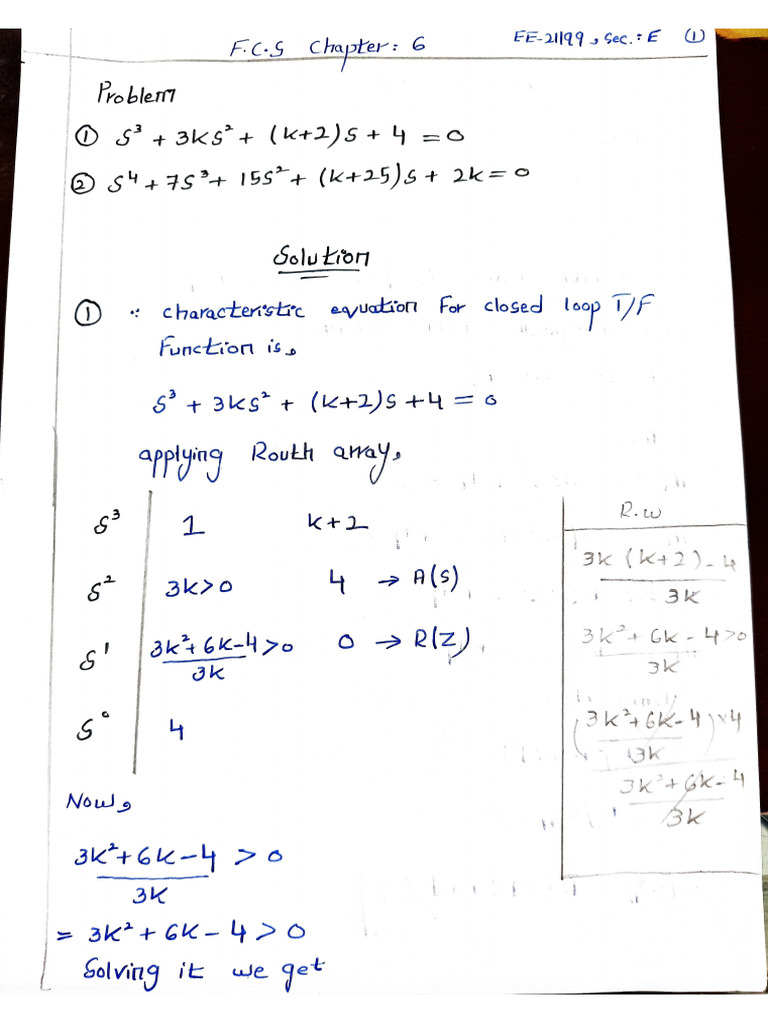 F.C.S Chapter: 6
EE-21199, Sec.: E ①
Problem
① S³ + 3KS² + (K+2)S + 4 = 0
② S⁴ + 7S³ + 15S² + (K+25)S + 2K = 0
Solution
① ∵ characteristic equation For closed loop T/F
Function is,
S³ + 3KS² + (K+2)S + 4 = 0
applying Routh array,
S³ | 1 K+2
S² | 3K>0 4 → A(S)
S¹ | (3K²+6K-4)/3K >0 0 → R(Z)
S⁰ | 4
R.W
(3K(K+2)-4)/3K
(3K²+6K-4>0)/3K
((3K²+6K-4)/3K)×4
(3K²+6K-4)/3K
Now,
(3K²+6K-4)/3K > 0
= 3K²+6K-4>0
Solving it we get